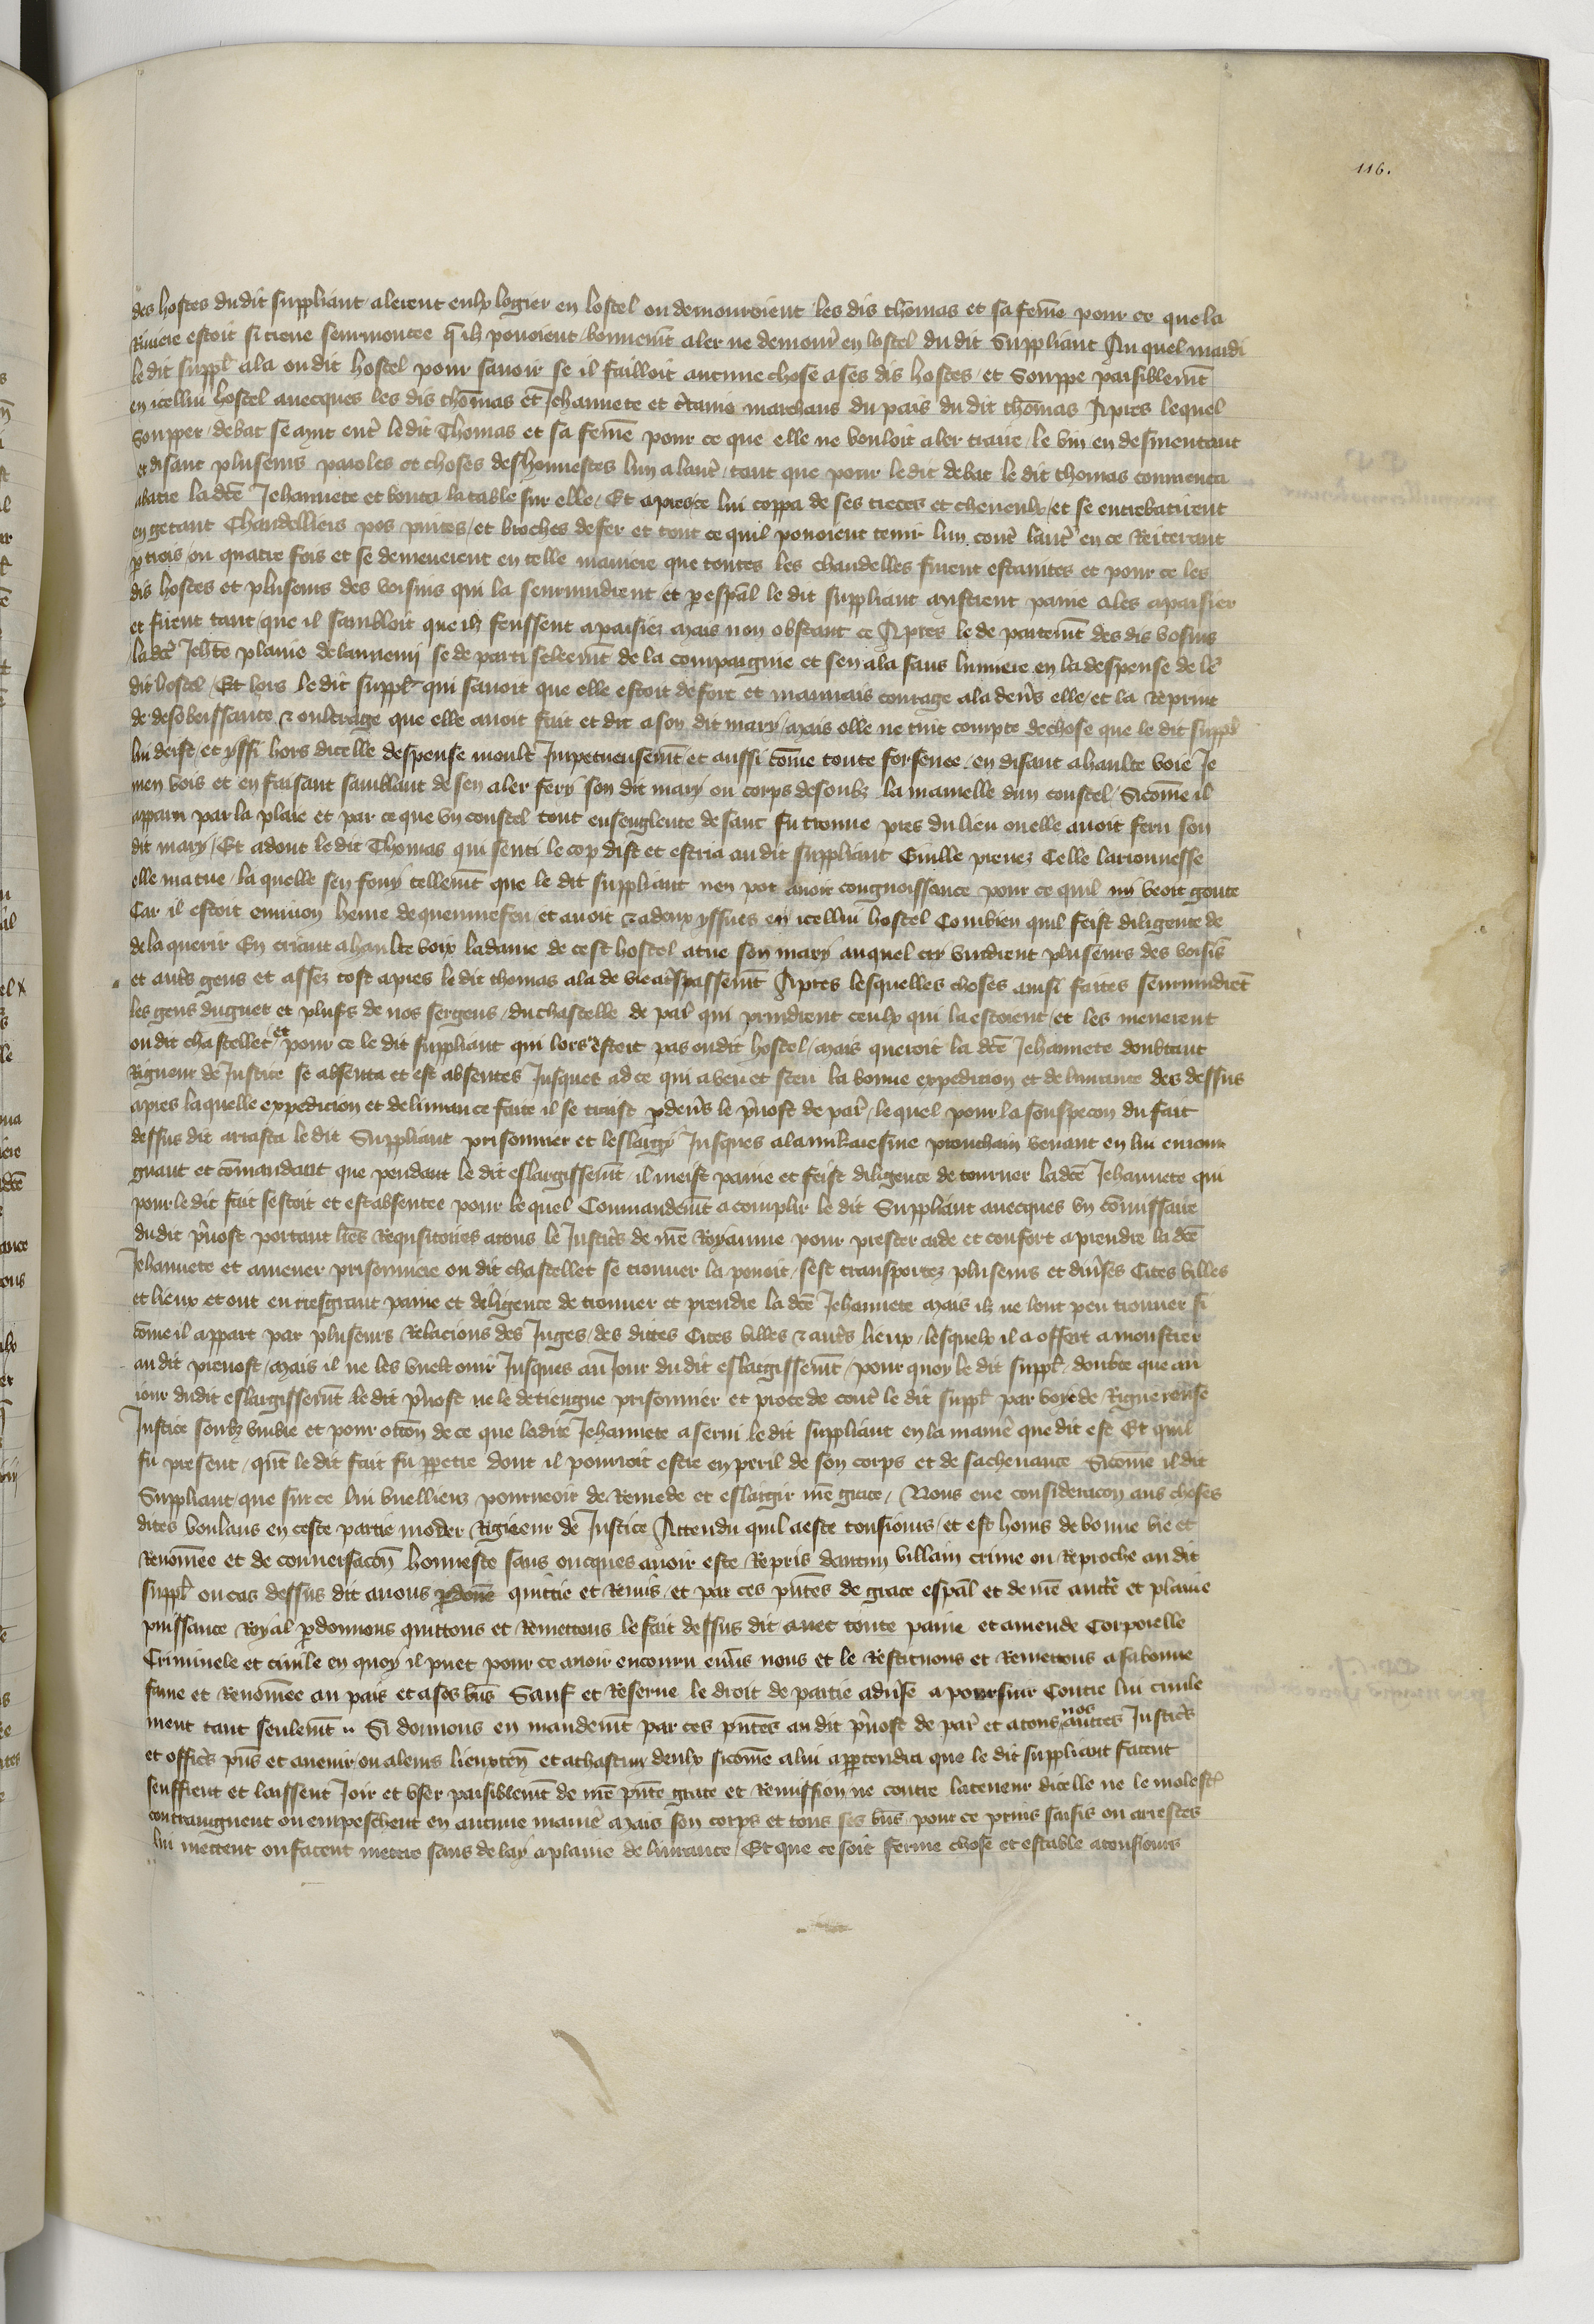 116.
des hostes du dit suppliant alerent eulx logier en lostel ou demouroient les dis thomas et sa feme pour ce que la
Riviere estoit si creue seurmontee q̃ ilz pouoient bonnemt̃ aler ne demourer en lostel du dit Suppliant Au quel mardi
le dit suppl̃ ala ou dit hostel pour savoir se il failloit aucune chose a ses dis hostes et Souppe paisiblemt̃
en icellui hostel avecques les dis thomas et Jehannete et c̃tains marchans du pais du dit thomas Apres lequel
Soupper debat se mut entr̃ le dit Thomas et sa feme pour ce que elle ne vouloit aler traire le vin en desmentant
et disant pluseurs paroles et choses deshonnestes lun a lautr̃ tant que pour le dit debat le dit thomas commenca
abatre la dc̃e Jehannete et bouta la table sur elle Et apres ce lui coppa de ses treces et cheveulx et se entrebatirent
en getant Chandelliers pos pintes et broches de fer et tout ce quil pouoient tenir lun contr̃ lautr̃ en ce Reiterant
p trois ou quatre fois et se demenerent en telle maniere que toutes les chandelles furent estaintes et pour ce les
dis hostes et pluseurs des voisins qui la seurvindrent et p esp̃al le dit suppliant mistrent paine a les apaisier
et furent tant que il sambloit que ilz feussent apaisiez Mais non obstant ce Apres le departemt̃ des dis voisins
la dc̃e Jeh̃te plaine de lannemi se departi secreemt̃ de la compaignie et sen ala sans lumiere en la despense de le
dit hostel Et lors le dit suppl̃ qui savoit que elle estoit de fort et mauvais courage ala deũs elle et la Reprint
de desobeissance & oultrage que elle avoit fait et dit a son dit mary Mais elle ne tint compte de chose que le dit suppl̃
lui deist et yssi hors dicelle despense moult Impetueusemt̃ et aussi com̃e toute forsenee en disant a haulte voie Je
men vois et en faisant samblant de sen aler fery son dit mary ou corps desoubz la mamelle dun coustel Sicom̃e il
apparu par la plaie et par ce que un coustel tout ensenglente de sanc fu trouve pres du lieu ou elle avoit feru son
dit mary Et adont le dit Thomas qui senti le cop dist et escria au dit suppliant Guille prenez Celle larronnesse
elle ma tue la quelle sen fouy tellemt̃ que le dit suppliant nen pot avoir congnoissance pour ce quil ny veoit goute
Car il estoit environ heure de queuvrefeu et avoit adeux yssues en icellui hostel Combien quil feist diligente de
de la querir En criant a haulte voix la dame de cest hostel a tue son mary auquel cry vindrent pluseurs des voisĩs
et autr̃s gens et assez tost apres le dit thomas ala de vie a tr̃spassemt̃ Apres lesquelles choses ainsi faites seurvindrẽt
les gens du guet et plus̃s de nos sergens du chastelle de par̃ qui prindrent ceulx qui la estoient et les menerent
ou dit chastellet et pour ce le dit suppliant qui lors nestoit pas ou dit hostel Mais queroit la dc̃e Jehannete doubtant
Rigueur de Justice se absenta et est absentes Jusques ad ce qui a veu et sceu la bonne expedicion et delivrance des dessus
apres laquelle expedicion et delivrance faite il se traist p deũs le p̃vost de par̃ lequel pour la souspecon du fait
dessus dit aresta le dit Suppliant prisonnier et leslargy Jusques a la mikaresme prouchain venant en lui enjoin
gnant et com̃andant que pendant le dit eslargissemt̃ il meist paine et feist diligence de tourver la dc̃e Jehannete qui
pour le dit fait sestoit et est absentee pour lequel Commandemt̃ acomplir le dit Suppliant avecques un com̃issaire
du dit p̃vost portant lr̃es Requisitoires a tous le Justic̃s de nr̃e Royaume pour prester aide et confort a prendre la dc̃e
Jehannete et amener prisonniere ou dit chastellet se trouver la pouoit sest transportez pluseurs et div̾ses Cites villes
et lieux et ont eu tresgrant paine et deligence de trouver et prendre la dc̃e Jehannete Mais ilz ne lont peu trouver si
com̃e il appart par pluseurs Relacions des Juges des dittes Cites villes & autr̃s lieux lesquelx il a offert a monstrer
au dit prevost Mais il ne les vuelt ouir Jusques au Jour du dit eslargissemt̃ pour quoy le dit suppl̃ doubte que au
jour dudit eslargissemt̃ le dit p̃vost ne le detiengne prisonnier et procede contr̃ le dit suppl̃ par voye de Riguereuse
Justice soubz umbre et pour occ̃on de ce que ladite Jehannete a servi le dit suppliant en la manie᷑ que dit est Et quil
fu present quñt le dit fait fu ppetre dont il pourroit estre en peril de son corps et de sa chevance Sicom̃e il dit
Suppliant que sur ce lui vuelliens pourveoir de Remede et eslargir nr̃e grace Nous eue consideracon aus choses
dites voulans en ceste partie moder Rigueur de Justice Attendu quil a este tousjours et est homs de bonne vie et
Renom̃ee et de conversacõn honneste sans oncques avoir este Repris daucun villain crime ou Reproche au dit
suppl̃ ou cas dessus dit avons pdonne quittie et Remis et par ces pñtes de grace esp̃al et de nr̃e auct̃e et plaine
puissance Royal pdonnons quittons et Remettons le fait dessus dit avec toute paine et amende Corporelle
Criminele et civile en quoy il puet pour ce avoir encouru env̾s nous et le Restituons et Remettons a sa bonne
fame et Renom̃ee au pais et a ses biẽs Sauf et Reserve le droit de partie adv̾se a poursuir Contre lui civile
ment tant seulemt̃ Si donnons en mandemt̃ par ces pñtes au dit p̃vost de par̃ et a tous nos autres Justic̃s
et offic̃s pñs et avenir ou a leurs lieuxteñ et a chascun deulx sicom̃e a lui appartendra que le dit suppliant facent
seuffrent et laissent Joir et user paisiblemt̃ de nr̃e pñte grace et Remission ne contre la teneur dicelle ne le molest̃
contraignent ou empeschent en aucune manie᷑ Mais son corps et tous ses biẽs pour ce prins saisis ou arrestes
lui mettent ou facent mettre sans delay a plaine delivrance Et que ce soit ferme chose et estable a tousjours